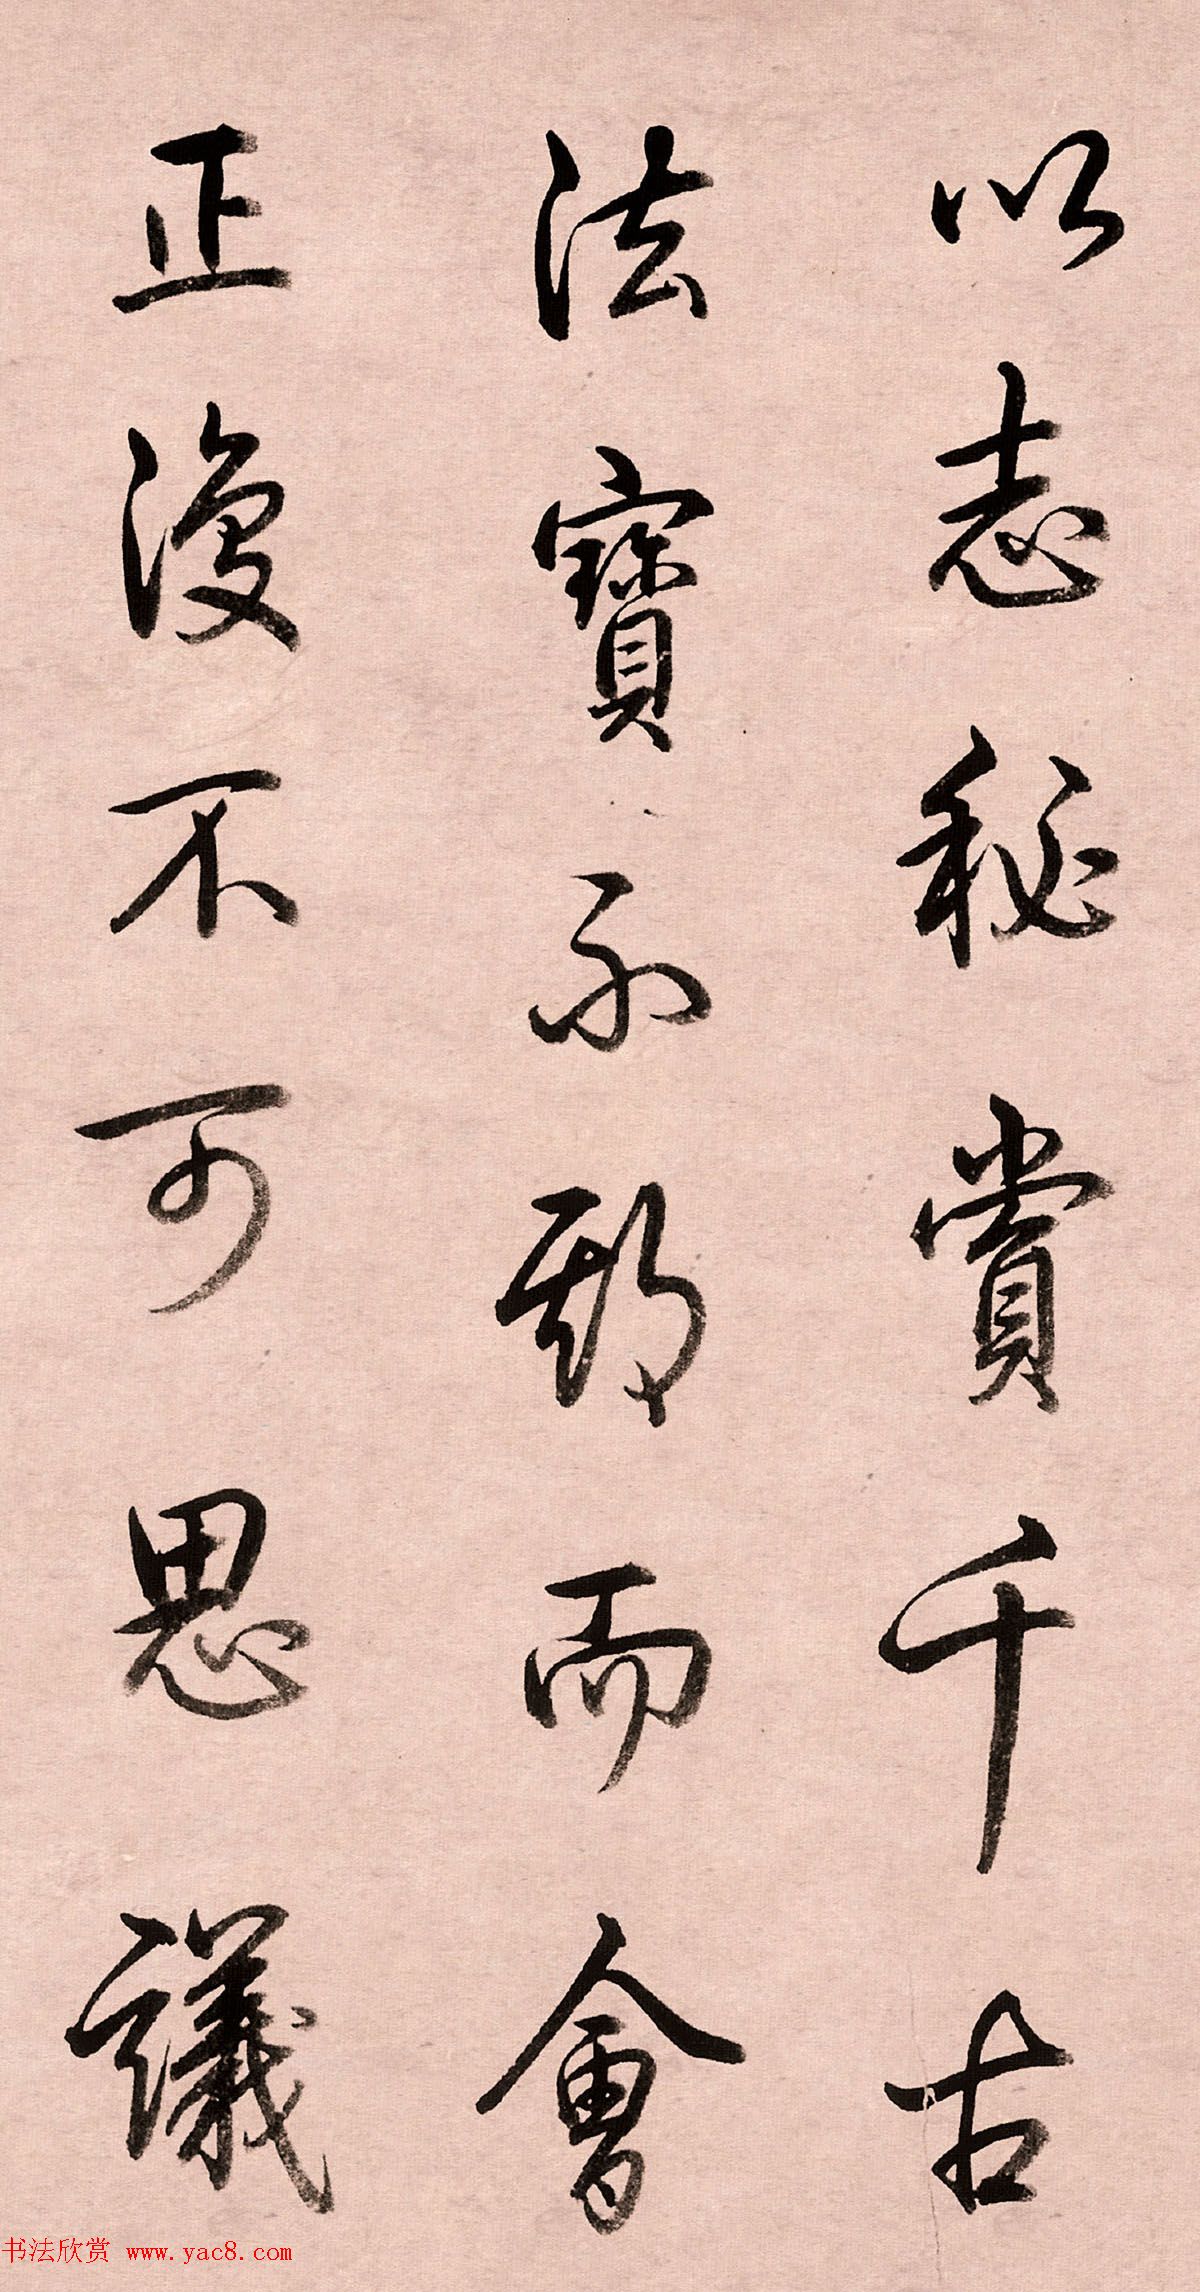 以志秘賞千古
法寶不期而會
正復不可思議
书法欣赏 www.yac8.com